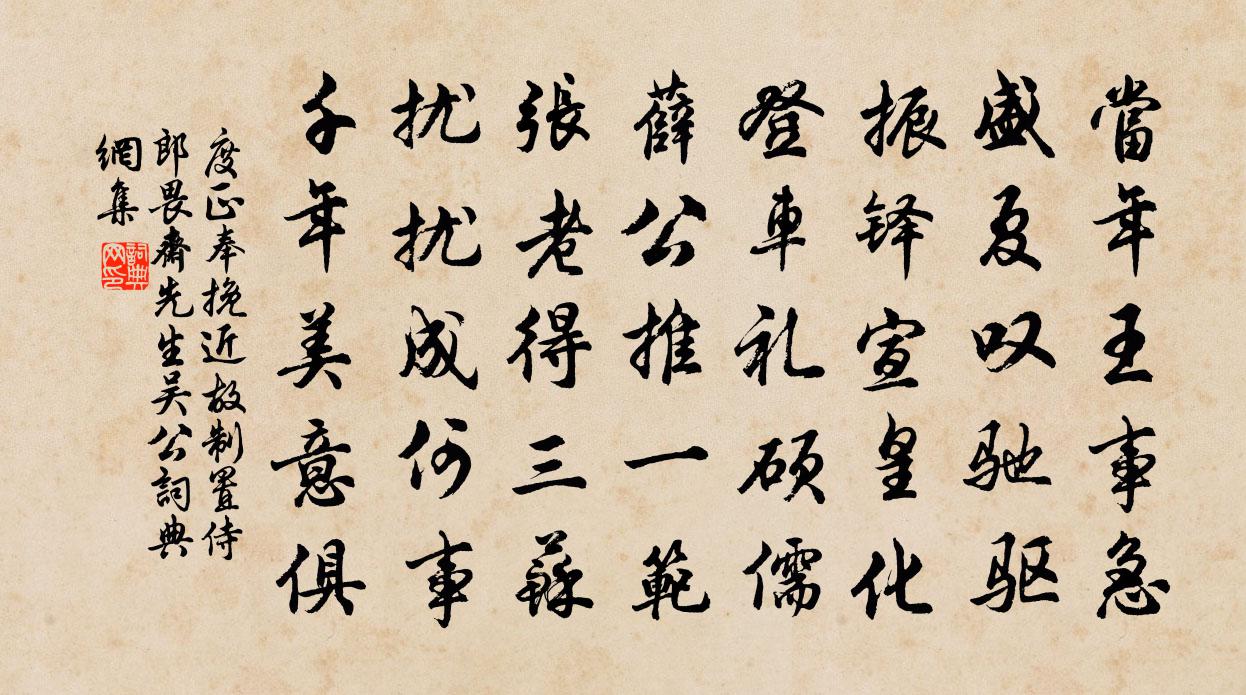 當年王事急
盛夏叹驰驱
振铎宣皇化
登車礼硕儒
薛公推一範
張老得三蘇
扰扰成何事
千年美意俱
度正奉挽近故制置侍
郎畏齋先生吴公詞典
網集
詞典网印